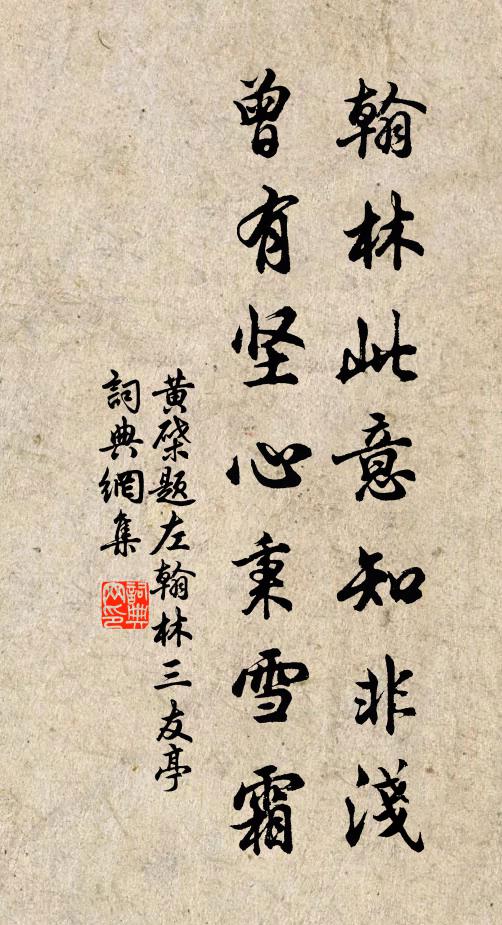 翰林此意知非淺
曾有坚心秉雪霜
黄檗题左翰林三友亭
詞典網集
詞典網印